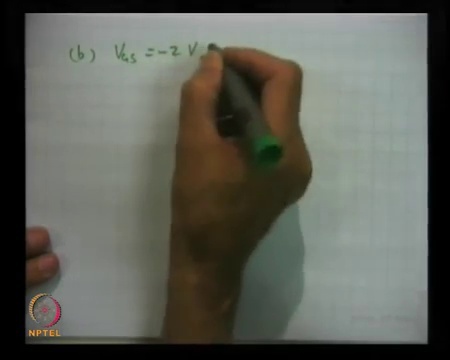 (b) V_GS = -2 V
NPTEL